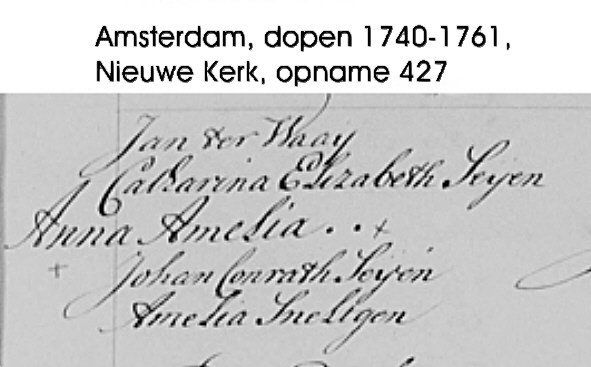 Amsterdam, dopen 1740-1761,
Nieuwe Kerk, opname 427
Jan ter Waay
Catharina Elizabeth Seyen
Anna Amelia . . +
+ Johan Conrath Seyen
Amelia Sneligen